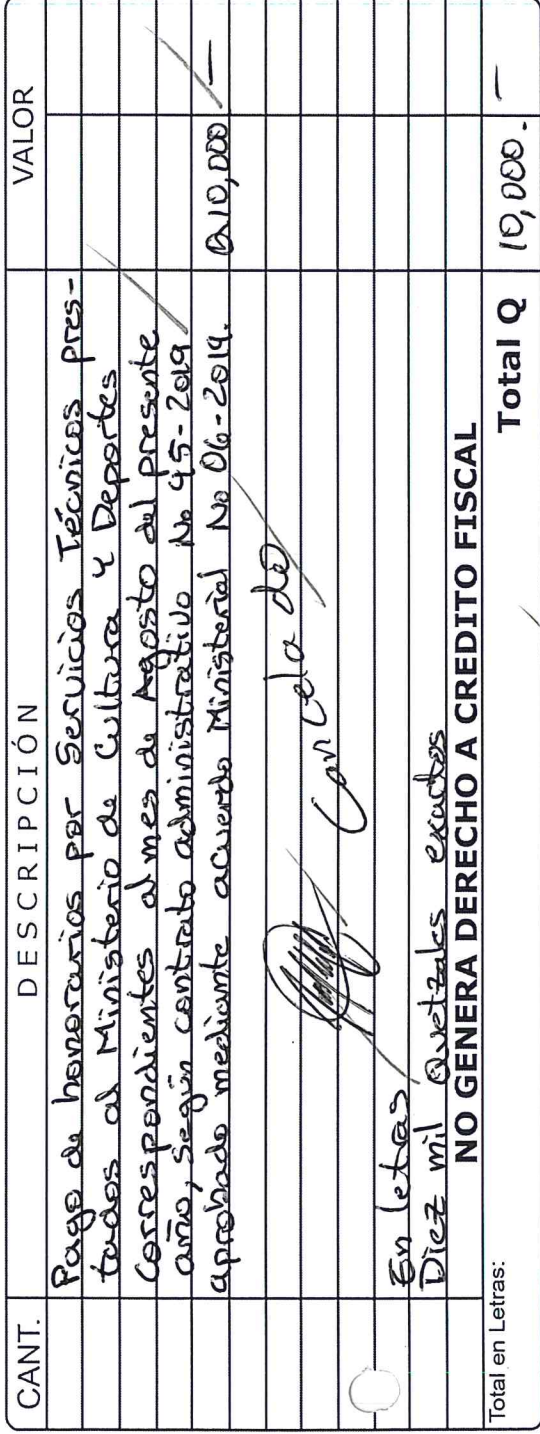 CANT. DESCRIPCIÓN VALOR
Pago de honorarios por Servicios Técnicos pres-
tados al Ministerio de Cultura y Deportes
Correspondientes al mes de Agosto del presente
año, según contrato administrativo No 45-2019
aprobado mediante acuerdo Ministerial No 06-2019. Q10,000 —
Cancelado
En letras
Diez mil Quetzales exactos
NO GENERA DERECHO A CREDITO FISCAL
Total en Letras: Total Q 10,000. —